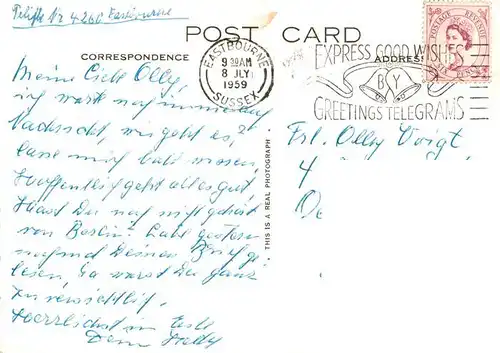 Telefon Nr 4260 Eastbourne
POST CARD
CORRESPONDENCE
ADDRESS
EASTBOURNE
9 30AM
8 JLY
1959
SUSSEX
EXPRESS GOOD WISHES
BY
GREETINGS TELEGRAMS
POSTAGE REVENUE
THIS IS A REAL PHOTOGRAPH
Meine Liebe Olly,
ich warte noch immer auf
Nachricht, wie geht es,
lasse mich bald wissen,
Hoffentlich geht alles gut,
Hast Du noch nicht gehört
von Berlin? Habe gestern
nochmal Deinen Brief ge-
lesen, da warst Du ganz
zuversichtlich.
Herzlichst in Eile
Dein
Frl. Olly Voigt
4